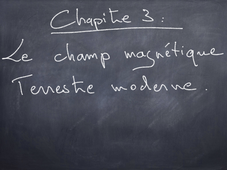 Chapitre 3 :
Le champ magnétique
Terrestre moderne.